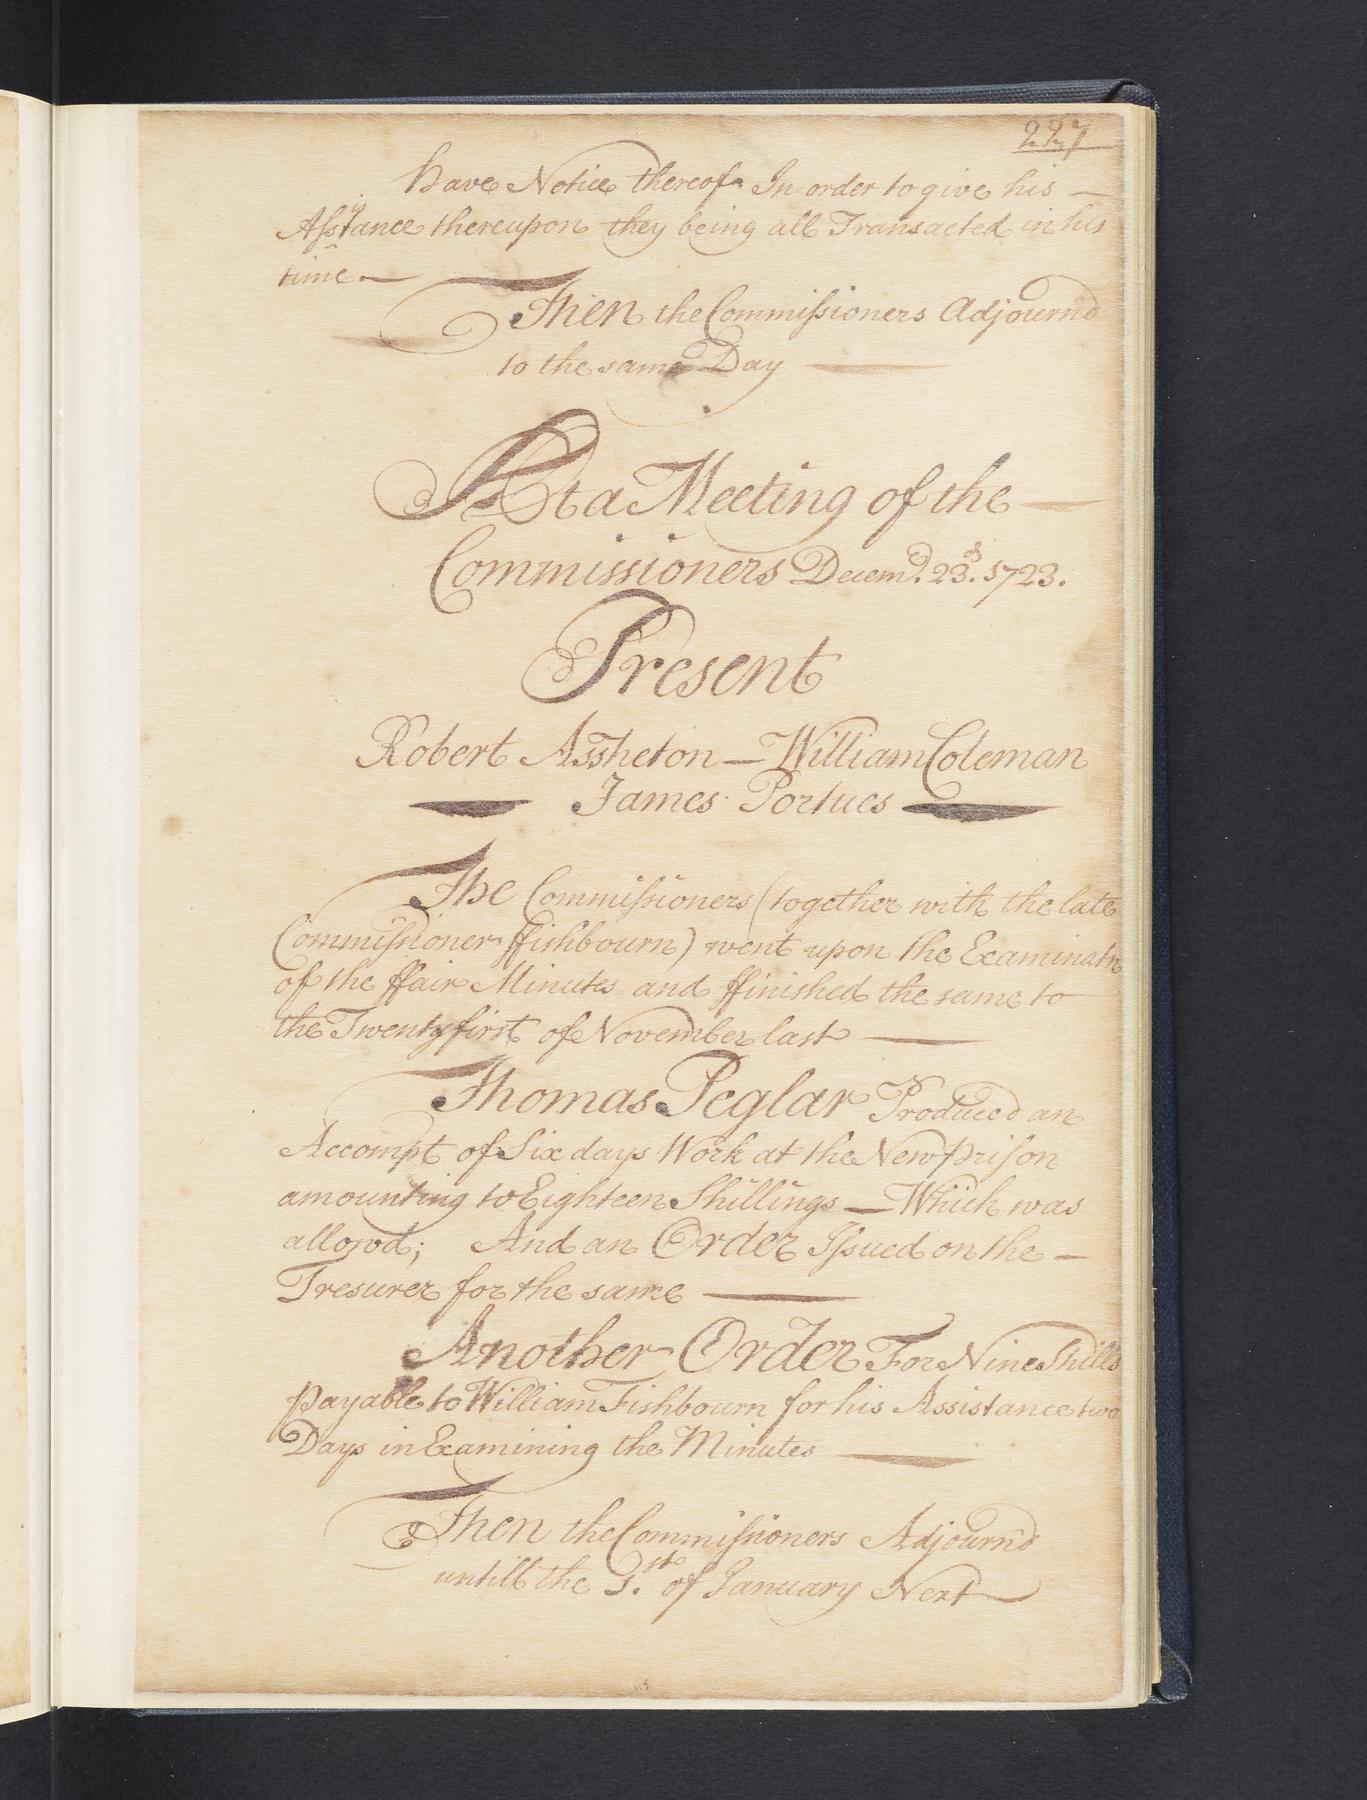 227
have Notice thereof In order to give his —
Assistance thereupon they being all Transacted in his
time —
Then the Commissioners Adjournd
to the same Day —
At a Meeting of the —
Commissioners Decemr. 23d. 1723.
Present
Robert Assheton — William Coleman
— James Portues —
The Commissioners (together with the late
Commissioner ffishbourn) went upon the Examinatn
of the ffair Minutes and ffinished the same to
the Twenty first of November last —
Thomas Peglar Produced an
Accompt of Six days Work at the New prison
amounting to Eighteen Shillings — Which was
allowd; And an Order Issued on the —
Tresurer for the same —
Another Order For Nine Shills
payable to William Fishbourn for his Assistance two
Days in Examining the Minutes —
Then the Commissioners Adjournd
untill the 1.st of January Next
115